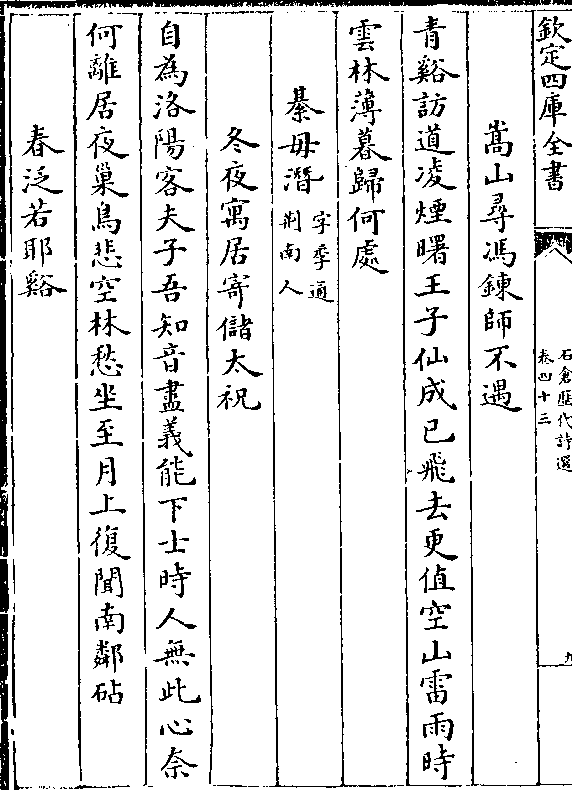 欽定四庫全書
石倉歷代詩選
卷四十三
九
嵩山尋馮鍊師不遇
青谿訪道凌煙曙王子仙成已飛去更值空山雷雨時
雲林薄暮歸何處
綦毋潛
字季通
荆南人
冬夜寓居寄儲太祝
自為洛陽客夫子吾知音盡義能下士時人無此心奈
何離居夜巢鳥悲空林愁坐至月上復聞南鄰砧
春泛若耶谿